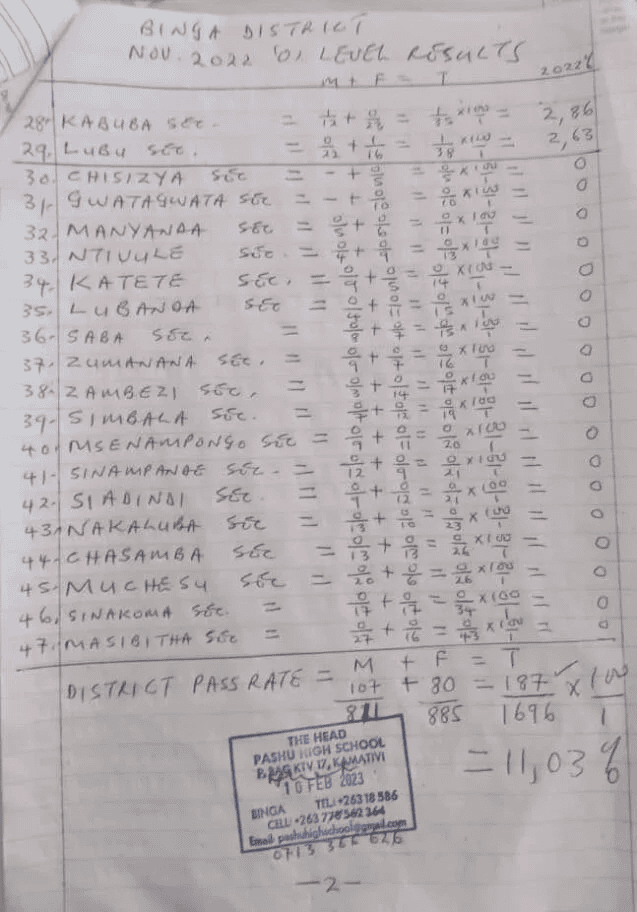 BINGA DISTRICT
NOV. 2022 'O' LEVEL RESULTS
M + F = T 2022%
28. KABUBA SEC. = 1/12 + 0/23 = 1/35 x 100/1 = 2,86
29. LUBU SEC. = 0/22 + 1/16 = 1/38 x 100/1 = 2,63
30. CHISIZYA SEC = - + 0/5 = 0/5 x 100/1 = 0
31. GWATAGWATA SEC = - + 0/10 = 0/10 x 100/1 = 0
32. MANYANDA SEC = 0/5 + 0/6 = 0/11 x 100/1 = 0
33. NTIVULE SEC. = 0/4 + 0/9 = 0/13 x 100/1 = 0
34. KATETE SEC. = 0/9 + 0/5 = 0/14 x 100/1 = 0
35. LUBANDA SEC = 0/4 + 0/11 = 0/15 x 100/1 = 0
36. SABA SEC. = 0/8 + 0/7 = 0/15 x 100/1 = 0
37. ZUMANANA SEC. = 0/9 + 0/7 = 0/16 x 100/1 = 0
38. ZAMBEZI SEC. = 0/3 + 0/14 = 0/17 x 100/1 = 0
39. SIMBALA SEC. = 0/7 + 0/12 = 0/19 x 100/1 = 0
40. MSENAMPONGO SEC = 0/9 + 0/11 = 0/20 x 100/1 = 0
41. SINAMPANDE SEC. = 0/12 + 0/9 = 0/21 x 100/1 = 0
42. SIADINDI SEC. = 0/9 + 0/12 = 0/21 x 100/1 = 0
43. NAKALUBA SEC = 0/13 + 0/10 = 0/23 x 100/1 = 0
44. CHASAMBA SEC = 0/13 + 0/13 = 0/26 x 100/1 = 0
45. MUCHESU SEC = 0/20 + 0/6 = 0/26 x 100/1 = 0
46. SINAKOMA SEC. = 0/17 + 0/17 = 0/34 x 100/1 = 0
47. MASIBITHA SEC = 0/27 + 0/16 = 0/43 x 100/1 = 0
M + F = T
DISTRICT PASS RATE = 107/811 + 80/885 = 187/1696 ✓ x 100/1
= 11,03%
THE HEAD
PASHU HIGH SCHOOL
P. BAG KTV 17, KAMATIVI
10 FEB 2023
BINGA TEL: +263 18 586
CELL: +263 778 562 364
Email: pashuhighschool@gmail.com
0713 366 626
-2-